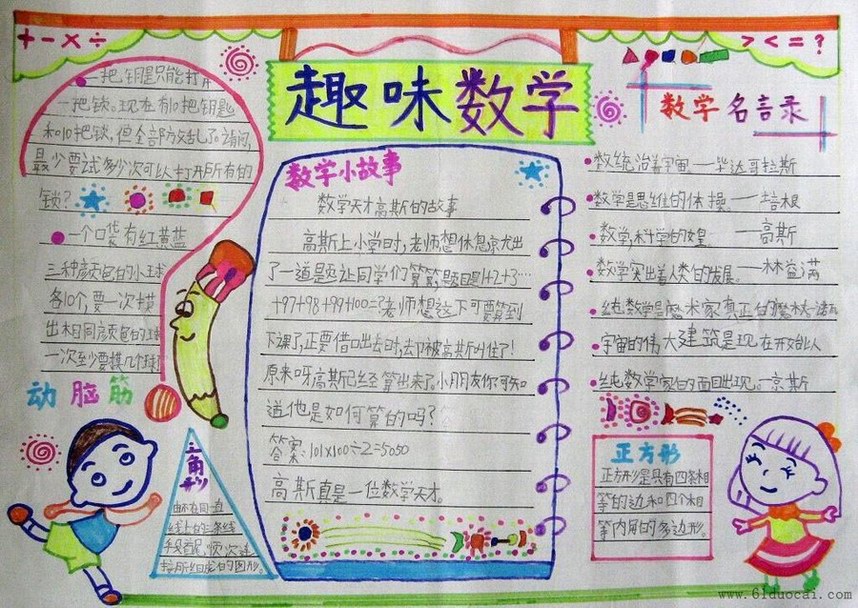 + - × ÷
> < = ?
趣味数学
一把钥匙只能打开
一把锁。现在有10把钥匙
和10把锁,但全部方文乱了。请问,
最少要试多少次可以打开所有的
锁?
一个口袋有红黄蓝
三种颜色的小球
各10个要一次摸
出相同颜色的球
一次至少要摸几个球
动脑筋
三角形
由不在同一直
线上的三条线
段首尾,顺次连
接所组成的图形。
数学小故事
数学天才高斯的故事
高斯上小学时,老师想休息京尤出
了一道题让同学们算算,题目是1+2+3…
+97+98+99+100=?老师想这下可要算到
下课了,正要借口出去时,去却被高斯叫住了!
原来呀高斯已经算出来了。小朋友你可知
道他是如何算的吗?
答案:101×100÷2=5050
高斯真是一位数学天才。
数学名言录
数统治着宇宙。——毕达哥拉斯
数学是思维的体操。——培根
数学,科学的女皇——高斯
数学突出着人类的发展。——林益满
纯数学是魔术家真正的魔杖
宇宙的伟大建筑是现在开始以
纯数学家的面目出现。——京斯
正方形
正方形是具有四条相
等的边和四个相
等内角的多边形。
www.61duocai.com